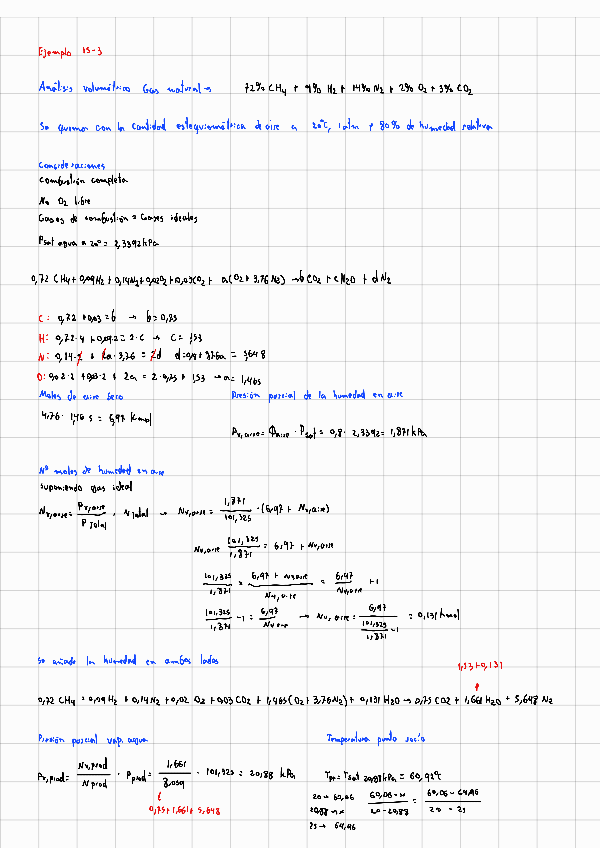 Ejemplo 15-3
Análisis volumétrico Gas natural → 72% CH4 + 9% H2 + 14% N2 + 2% O2 + 3% CO2
Se quema con la cantidad estequiométrica de aire a 20°C, 1 atm y 80% de humedad relativa
Consideraciones
Combustión completa
No O2 libre
Gases de combustión = Gases ideales
Psat agua a 20° = 2,3392 kPa
0,72 CH4 + 0,09H2 + 0,14N2 + 0,02O2 + 0,03CO2 + a(O2 + 3,76 N2) → bCO2 + cH2O + dN2
C: 0,72 + 0,03 = b → b = 0,75
H: 0,72·4 + 0,09·2 = 2·c → c = 1,53
N: 0,14·2 + 2a·3,76 = 2d d = 0,14 + 3,76a = 5,648
O: 0,02·2 + 0,03·2 + 2a = 2·0,75 + 1,53 → a = 1,465
Moles de aire seco Presión parcial de la humedad en aire
4,76 · 1,465 = 6,97 kmol
Pv,aire = Φaire · Psat = 0,8 · 2,3392 = 1,871 kPa
Nº moles de humedad en aire
Suponiendo gas ideal
Nv,aire = Pv,aire / P total · N total → Nv,aire = 1,871 / 101,325 · (6,97 + Nv,aire)
Nv,aire 101,325 / 1,871 = 6,97 + Nv,aire
101,325 / 1,871 = 6,97 + Nv,aire / Nv,aire = 6,97 / Nv,aire + 1
101,325 / 1,871 - 1 = 6,97 / Nv,aire → Nv,aire = 6,97 / 101,325 / 1,871 - 1 = 0,131 kmol
Se añade la humedad en ambos lados
1,53 + 0,131
0,72 CH4 + 0,09 H2 + 0,14 N2 + 0,02 O2 + 0,03 CO2 + 1,465(O2 + 3,76N2) + 0,131 H2O → 0,75 CO2 + 1,661 H2O + 5,648 N2
Presión parcial vap. agua Temperatura punto rocío
Pv,prod = Nv,prod / N prod · Pprod = 1,661 / 8,059 · 101,325 = 20,88 kPa
Tpr = Tsat 20,88 kPa = 60,92°C
0,75 + 1,661 + 5,648
20 → 60,06 60,06 - x / 20 - 20,88 = 60,06 - 64,96 / 20 - 25
20,88 → x
25 → 64,96